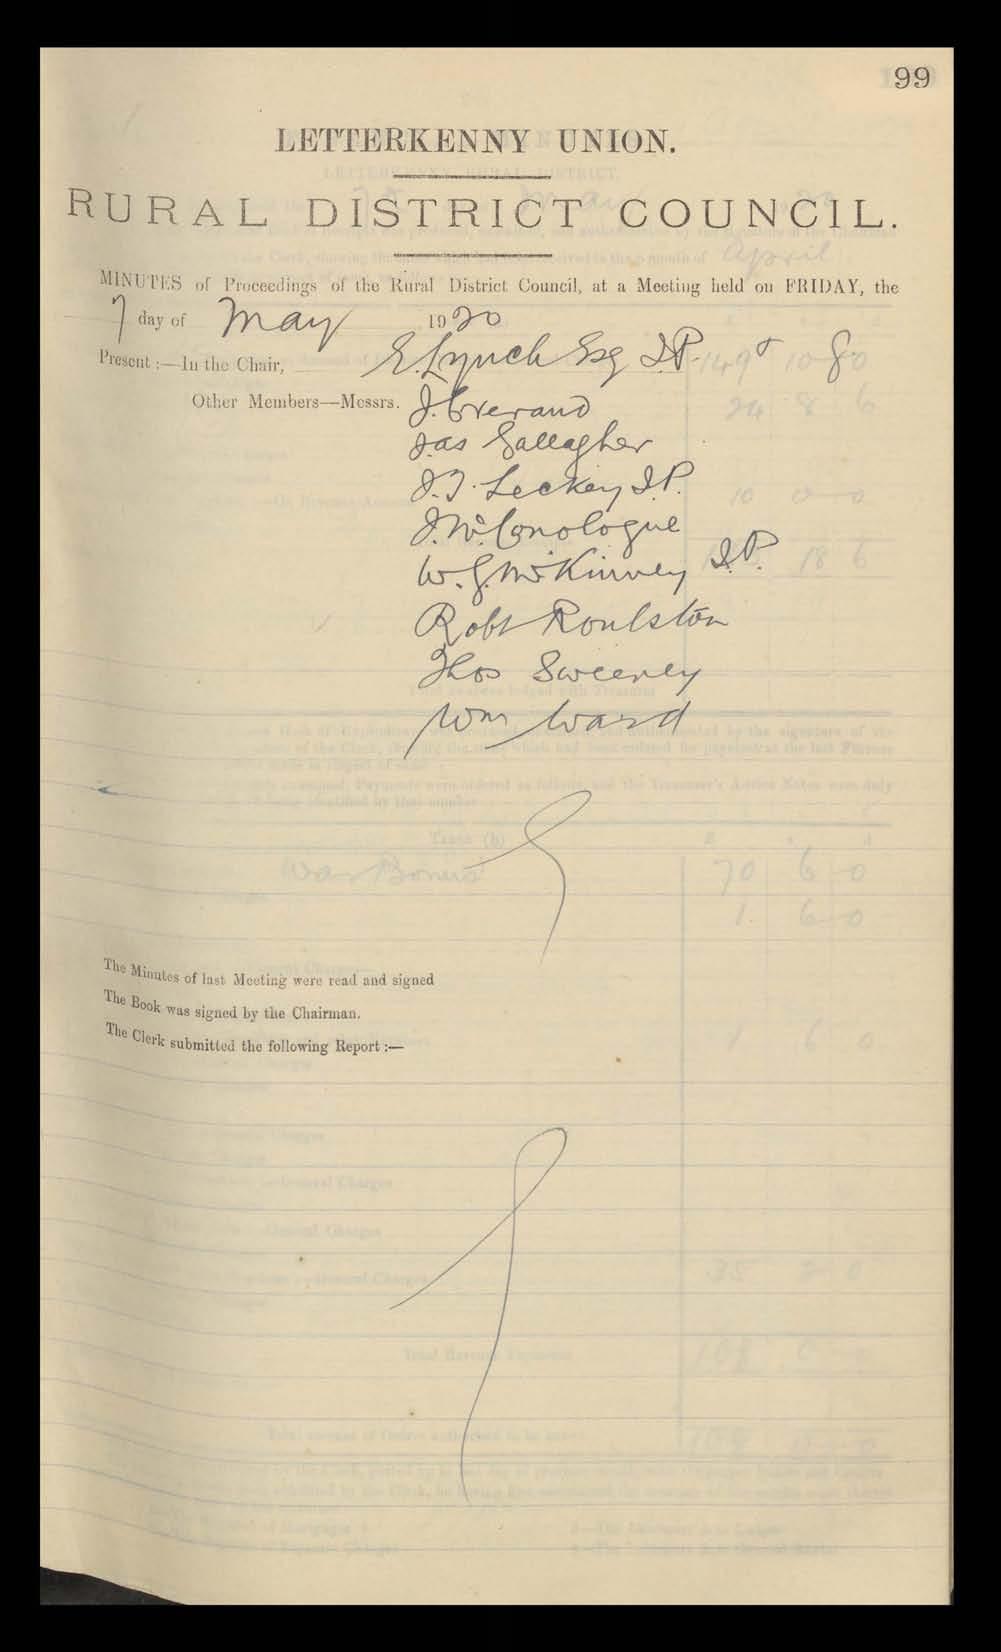 99
LETTERKENNY UNION.
RURAL DISTRICT COUNCIL.
MINUTES of Proceedings of the Rural District Council, at a Meeting held on FRIDAY, the
7 day of May 1920
Present :—In the Chair, E. Lynch Esq J.P.
Other Members—Messrs. J.
Jas Gallagher
J.T. Leckey J.P.
J. McConologue
W.G. McKinney J.P.
Robt Roulston
Thos Sweeney
Wm Ward
The Minutes of last Meeting were read and signed
The Book was signed by the Chairman.
The Clerk submitted the following Report :—